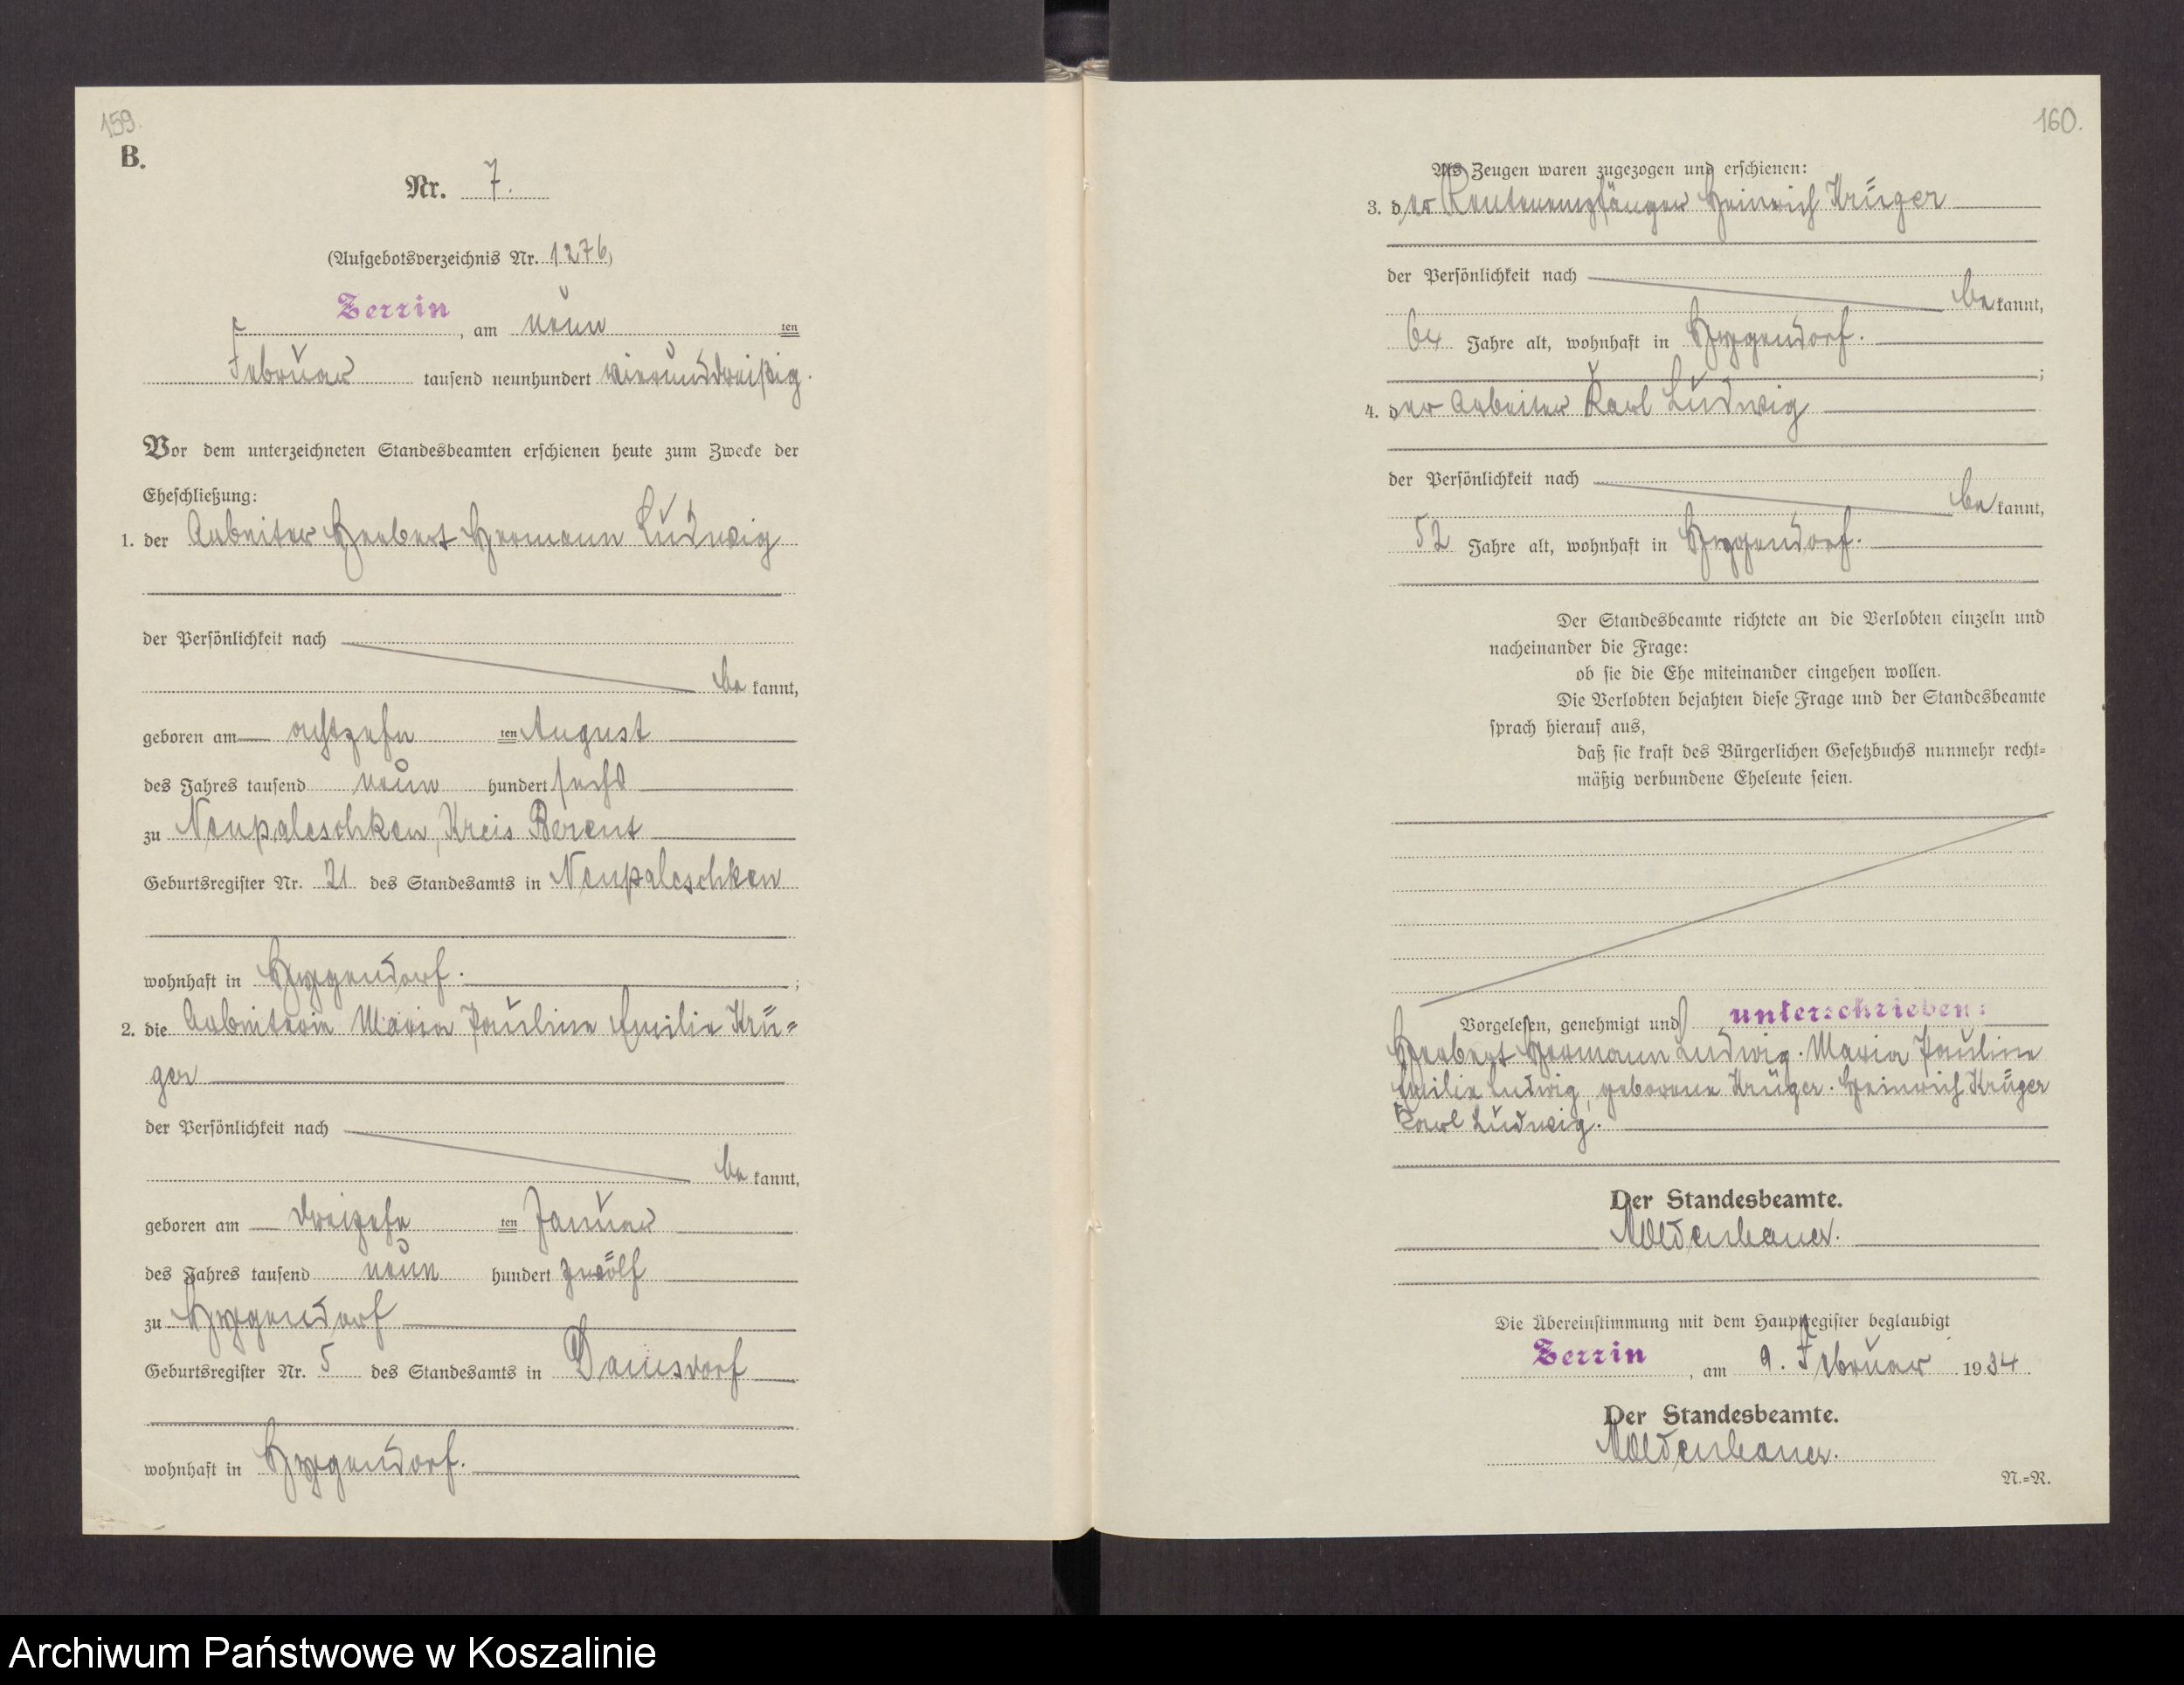 159.
B.
Nr. 7.
(Aufgebotsverzeichnis Nr. 1276)
Zerrin, am neun ten
Februar tausend neunhundert vierunddreißig.
Vor dem unterzeichneten Standesbeamten erschienen heute zum Zwecke der
Eheschließung:
1. der Arbeiter Herbert Hermann Ludwig
der Persönlichkeit nach
be kannt,
geboren am achtzehn ten August
des Jahres tausend neun hundert sechs
zu Neupaleschken, Kreis Berent
Geburtsregister Nr. 21 des Standesamts in Neupaleschken
wohnhaft in Hygendorf.;
2. die Arbeiterin Maria Pauline Emilie Krü=
ger
der Persönlichkeit nach
be kannt,
geboren am dreizehn ten Januar
des Jahres tausend neun hundert zwölf
zu Hygendorf
Geburtsregister Nr. 5 des Standesamts in Damsdorf
wohnhaft in Hygendorf.
160.
Als Zeugen waren zugezogen und erschienen:
3. der Rentenempfänger Heinrich Krüger
der Persönlichkeit nach
be kannt,
64 Jahre alt, wohnhaft in Hygendorf.
;
4. der Arbeiter Karl Ludwig
der Persönlichkeit nach
be kannt,
52 Jahre alt, wohnhaft in Hygendorf.
Der Standesbeamte richtete an die Verlobten einzeln und
nacheinander die Frage:
ob sie die Ehe miteinander eingehen wollen.
Die Verlobten bejahten diese Frage und der Standesbeamte
sprach hierauf aus,
daß sie kraft des Bürgerlichen Gesetzbuchs nunmehr recht=
mäßig verbundene Eheleute seien.
Vorgelesen, genehmigt und unterschrieben:
Herbert Hermann Ludwig. Maria Pauline
Emilie Ludwig, geborene Krüger. Heinrich Krüger
Karl Ludwig.
Der Standesbeamte.
Moldenhauer.
Die Übereinstimmung mit dem Hauptregister beglaubigt
Zerrin, am 9. Februar 1934.
Der Standesbeamte.
Moldenhauer.
N.=R.
Archiwum Państwowe w Koszalinie